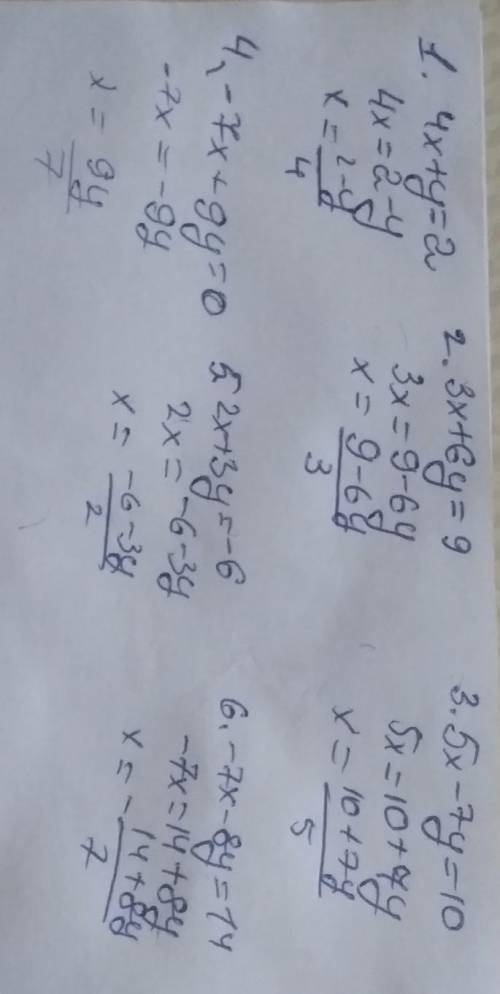 1. 4x+y=2
4x=2-y
x=2-y/4
2. 3x+6y=9
3x=9-6y
x=9-6y/3
3. 5x-7y=10
5x=10+7y
x=10+7y/5
4, -7x+9y=0
-7x=-9y
x=9y/7
5 2x+3y=-6
2x=-6-3y
x=-6-3y/2
6. -7x-8y=14
-7x=14+8y
x=-14+8y/7